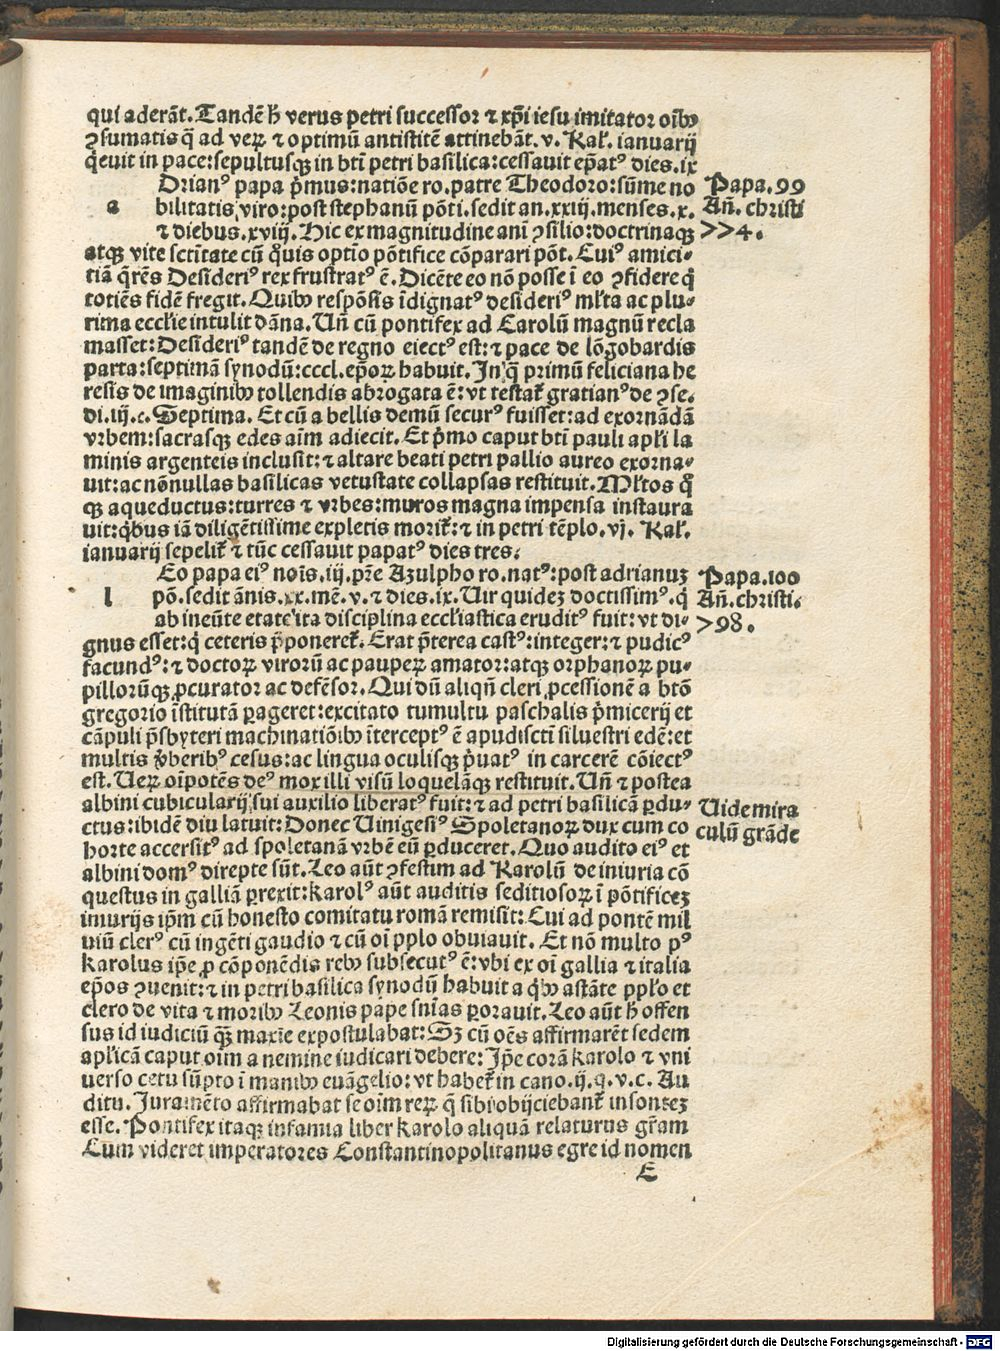 qui aderãt. Tandẽ h̃ verus petri successor ⁊ xp̃i iesu imitator oĩbꝰ
ꝯsumatis q̃ ad veꝝ ⁊ optimũ antistitẽ attinebãt. v. Kal̃. ianuarij
q̃evit in pace: sepultusqꝫ in btĩ petri basilica: cessavit ep̃atꝰ dies. ix
Drianꝰ papa p̃mus: natiõe ro. patre Theodoro: sũme no
a bilitatis viro: post stephanũ põti. sedit an. xxiij. menses. x.
⁊ diebus. xviij. Hic ex magnitudine ani ꝯsilio: doctrinaqꝫ
Papa. 99
Añ. christi
>>4.
atqꝫ vite sctĩtate cũ q̃uis optĩo põtifice cõparari põt. Cuiꝰ amici-
tiã q̃rẽs Desideriꝰ rex frustratꝰ ẽ. Dicẽte eo nõ posse ĩ eo ꝯfidere q̃
totiẽs fidẽ fregit. Quibꝰ respõsis ĩdignatꝰ desideriꝰ ml̃ta ac plu-
rima eccl̃ie intulit dãna. Uñ cũ pontifex ad Carolũ magnũ recla
masset: Desideriꝰ tandẽ de regno eiectꝰ est: ⁊ pace de lõgobardis
parta: septimã synodũ: cccl. ep̃oꝝ habuit. In q̃ primũ feliciana he
resis de imaginibꝰ tollendis abrogata ẽ: vt testat̃ gratianꝰ de ꝯse.
di. iij. c. Septima. Et cũ a bellis demũ securꝰ fuisset: ad exornãdã
vrbem: sacrasqꝫ edes aĩm adiecit. Et p̃mo caput btĩ pauli apl̃i la
minis argenteis inclusit: ⁊ altare beati petri pallio aureo exorna-
uit: ac nõnullas basilicas vetustate collapsas restituit. Ml̃tos q̃
qꝫ aqueductus: turres ⁊ vrbes: muros magna impensa instaura
uit: q̃bus iã diligẽtissime expletis morit̃: ⁊ in petri tẽplo. vj. Kal̃.
ianuarij sepelit̃ ⁊ tũc cessauit papatꝰ dies tres.
Eo papa eiꝰ noĩs. iij. pr̃e Azulpho ro. natꝰ: post adrianuꝫ
l põ. sedit ãnis. xx. mẽ. v. ⁊ dies. ix. Uir quideꝫ doctissimꝰ. q̃
ab ineũte etate ita disciplina eccl̃iastica eruditꝰ fuit: vt di-
Papa. 100
Añ. christi.
>98.
gnus esset: q̃ ceteris p̃poneret̃. Erat p̃terea castꝰ: integer: ⁊ pudicꝰ
facundꝰ: ⁊ doctoꝝ viroꝝũ ac paupeꝝ amator: atqꝫ orphanoꝝ pu-
pillorũqꝫ ꝓcurator ac defẽsor. Qui dũ aliqñ cleri ꝓcessionẽ a btõ
gregorio ĩstitutã ꝑageret: excitato tumultu paschalis p̃micerij et
cãpuli p̃sbyteri machinatiõibꝰ ĩterceptꝰ ẽ apud sctĩ siluestri edẽ: et
multis v̾beribꝰ cesus: ac lingua oculisqꝫ p̃uatꝰ in carcerẽ cõiectꝰ
est. Ueꝝ oĩpotẽs deꝰ mox illi visũ loquelãqꝫ restituit. Uñ ⁊ postea
albini cubicularij sui auxilio liberatꝰ fuit: ⁊ ad petri basilicã ꝑdu-
ctus: ibidẽ diu latuit: Donec Uinigesiꝰ Spoletanoꝝ dux cum co
Uide mira
culũ grãde
horte accersitꝰ ad spoletanã vrbẽ eũ ꝑduceret. Quo audito eiꝰ et
albini domꝰ direpte sũt. Leo aũt ꝯfestim ad Karolũ de iniuria cõ
questus in galliã ꝑrexit: karolꝰ aũt auditis seditiosoꝝ ĩ põtificeꝫ
iniurijs ip̃m cũ honesto comitatu romã remisit: Cui ad pontẽ mil
viũ clerꝰ cũ ingẽti gaudio ⁊ cũ oĩ pplo obuiauit. Et nõ multo pꝰ
karolus ip̃e ꝓ cõponẽdis rebꝰ subsecutꝰ ẽ: vbi ex oĩ gallia ⁊ italia
ep̃os ꝯuenit: ⁊ in petri basilica synodũ habuit a q̃bꝰ astãte ppl̃o et
clero de vita ⁊ moribꝰ Leonis pape sñias ꝑorauit. Leo aũt h̃ offen
sus id iudiciũ qꝫ̃ maxĩe expostulabat: Sꝫ cũ oẽs affirmarẽt sedem
apl̃icã caput oĩm a nemine iudicari debere: Ip̃e corã karolo ⁊ vni
uerso cetu sũpto ĩ manibꝰ euãgelio: vt habet̃ in cano. ij. q. v. c. Au
ditu. Juramẽto affirmabat se oĩm reꝝ q̃ sibi obijciebant̃ insonteꝫ
esse. Pontifex itaqꝫ infamia liber karolo aliquã relaturus gr̃am
Cum videret imperatores Constantinopolitanus egre id nomen
E
Digitalisierung gefördert durch die Deutsche Forschungsgemeinschaft - DFG